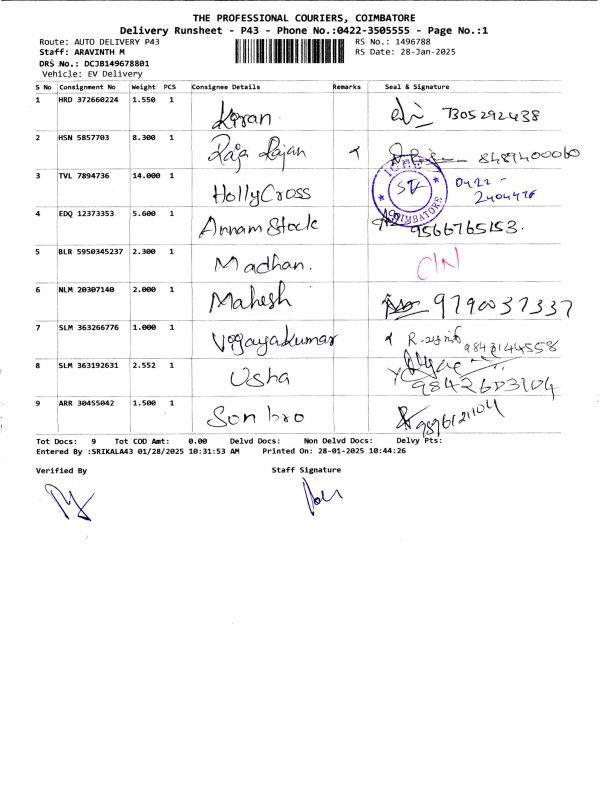 THE PROFESSIONAL COURIERS, COIMBATORE
Delivery Runsheet - P43 - Phone No.:0422-3505555 - Page No.:1
Route: AUTO DELIVERY P43 RS No.: 1496788
Staff: ARAVINTH M RS Date: 28-Jan-2025
DRS No.: DCJB149678801
Vehicle: EV Delivery
S No Consignment No Weight PCS Consignee Details Remarks Seal & Signature
1 HRD 372660224 1.550 1 Kiran. 7305292438
2 HSN 5857703 8.300 1 Raja Rajan 8489400060
3 TVL 7894736 14.000 1 HollyCross 0422 - 2404476
COIMBATORE
4 EDQ 12373353 5.600 1 Annam Stock 9566765153.
5 BLR 5950345237 2.300 1 Madhan. CIN
6 NLM 20307140 2.000 1 Mahesh 9790037337
7 SLM 363266776 1.000 1 Vijayakumar
8 SLM 363192631 2.552 1 Usha
9 ARR 30455042 1.500 1 Son bro
Tot Docs: 9 Tot COD Amt: 0.00 Delvd Docs: Non Delvd Docs: Delvy Pts:
Entered By :SRIKALA43 01/28/2025 10:31:53 AM Printed On: 28-01-2025 10:44:26
Verified By Staff Signature